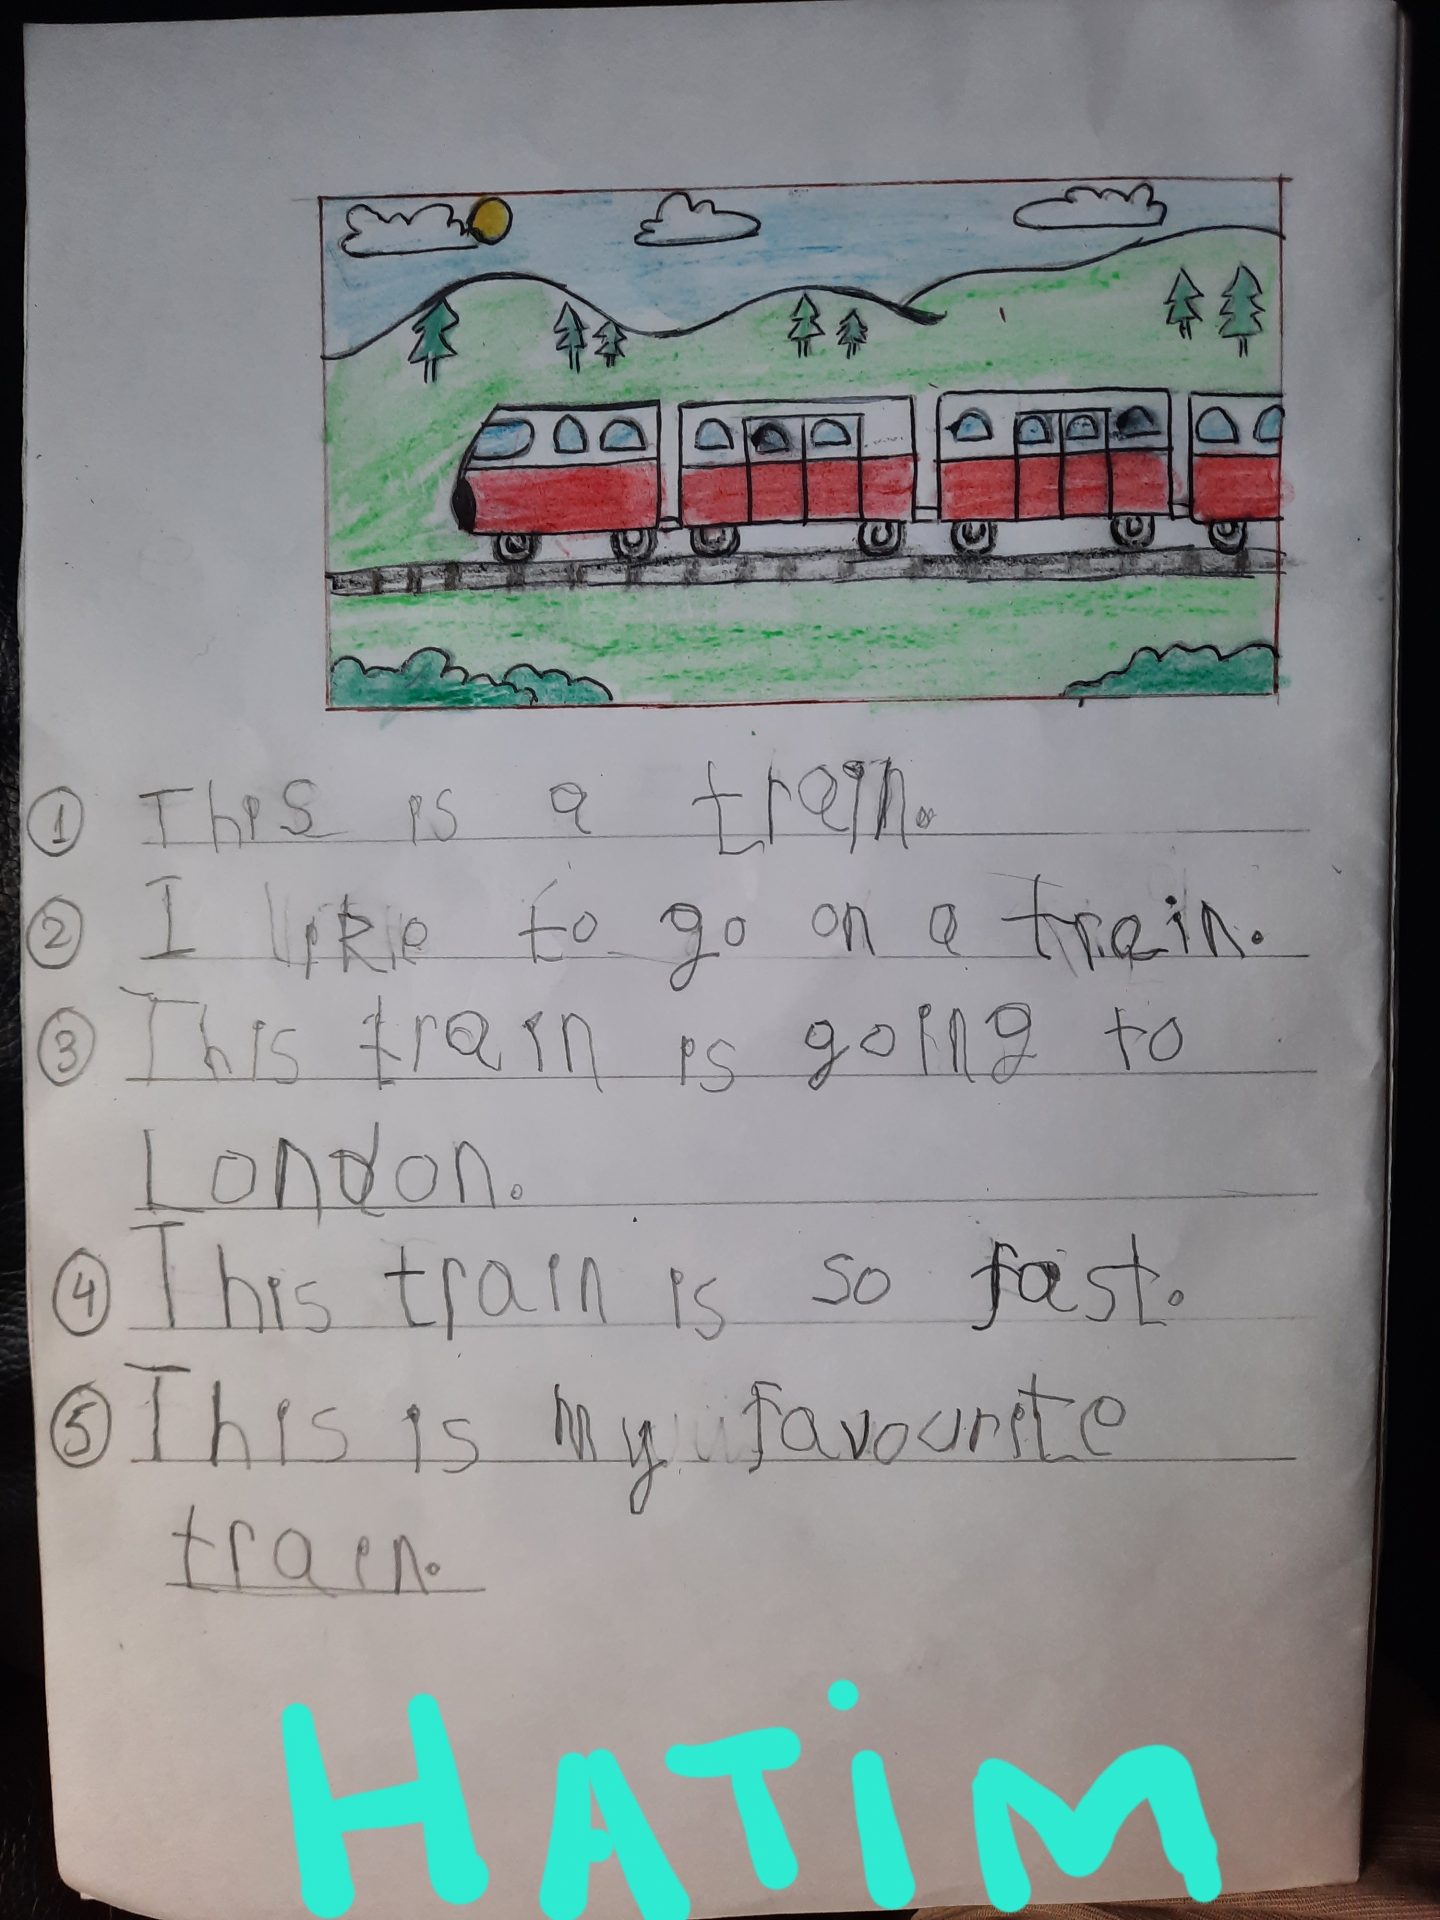 ① This is a train.
② I like to go on a train.
③ This train is going to
London.
④ This train is so fast.
⑤ This is my favourite
train.
HATiM